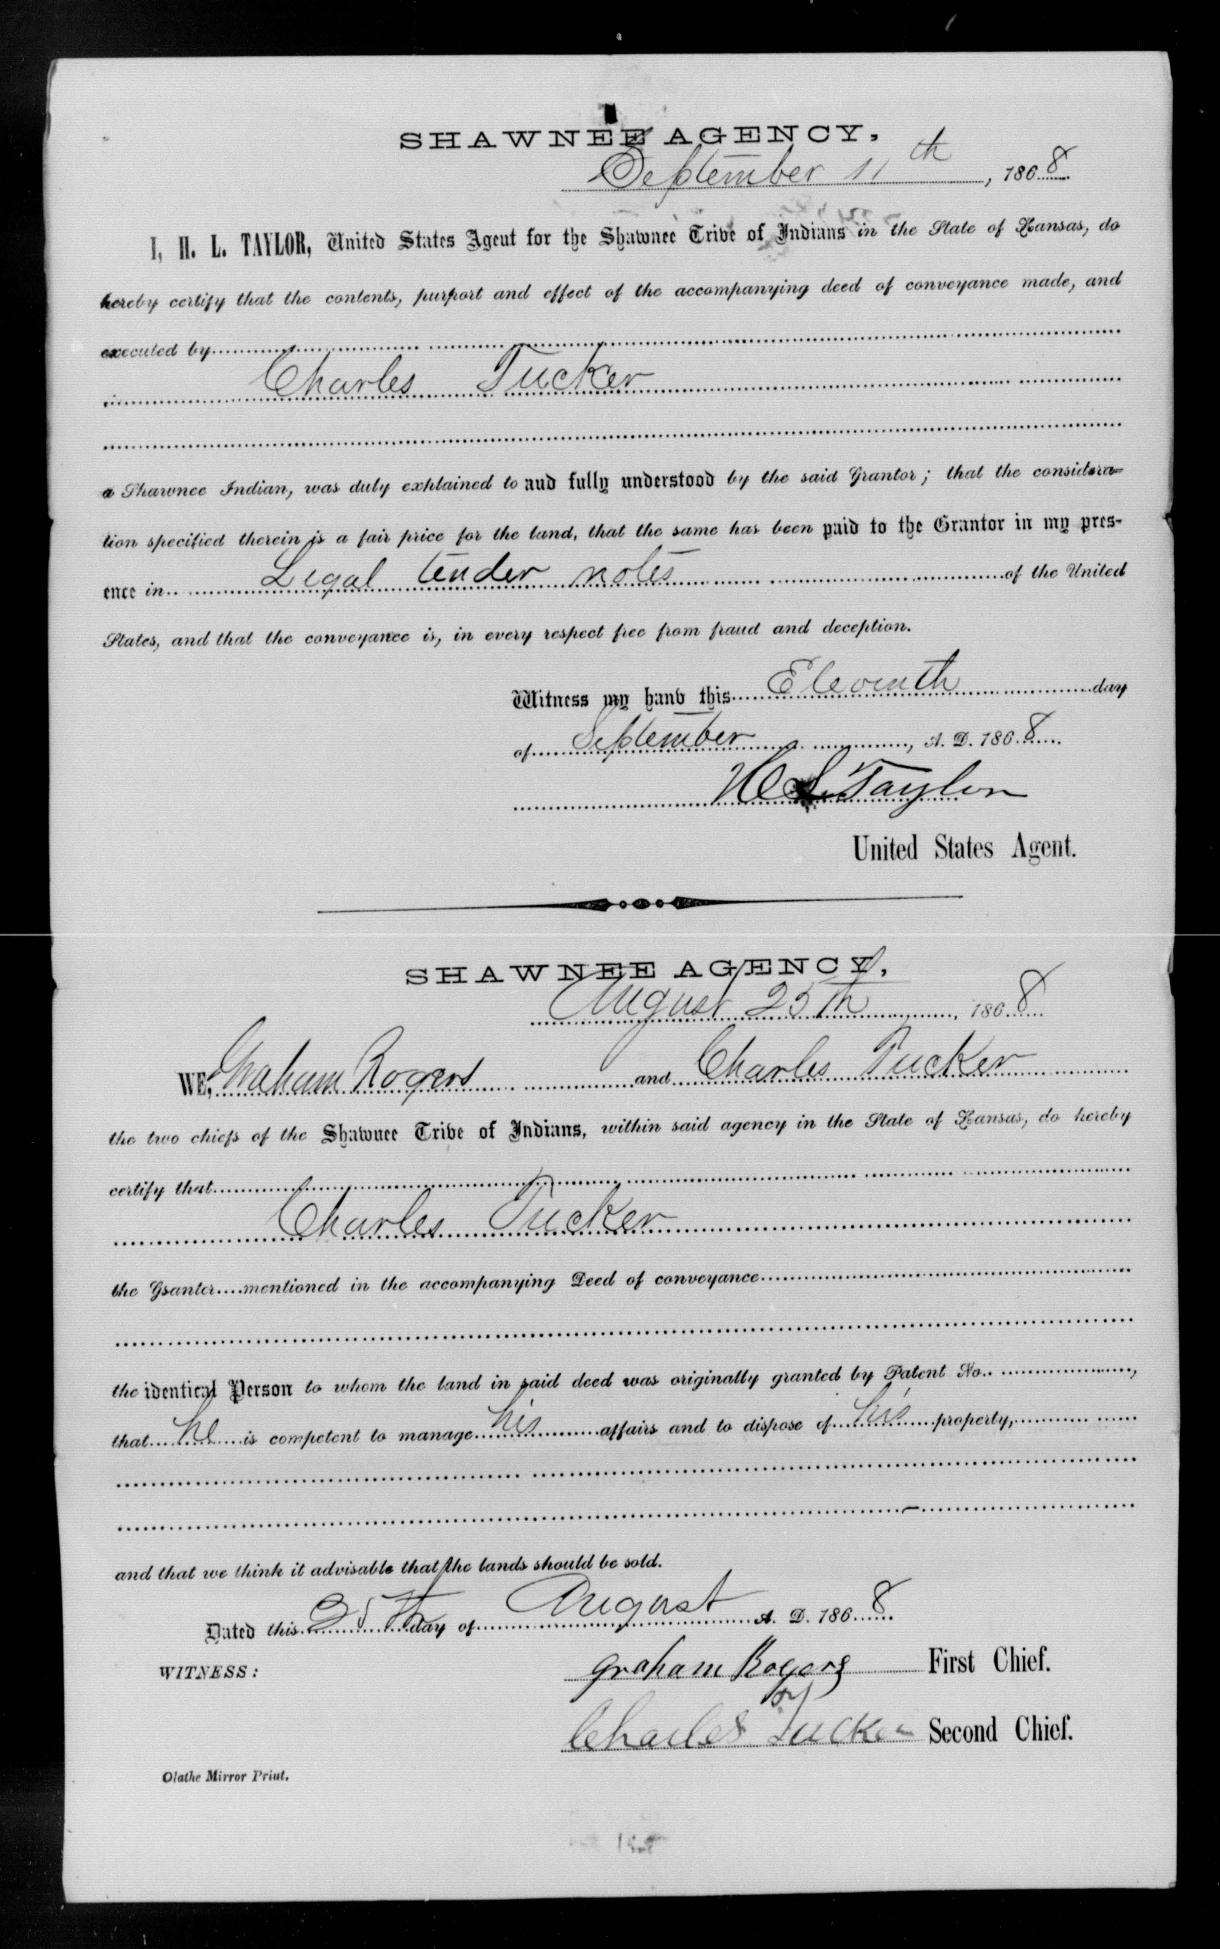 SHAWNEE AGENCY,
September 11th, 1868
I, H. L. TAYLOR, United States Agent for the Shawnee Tribe of Indians in the State of Kansas, do
hereby certify that the contents, purport and effect of the accompanying deed of conveyance made, and
executed by
Charles Tucker
a Shawnee Indian, was duly explained to and fully understood by the said Grantor; that the considera-
tion specified therein is a fair price for the land, that the same has been paid to the Grantor in my pres-
ence in Legal tender notes of the United
States, and that the conveyance is, in every respect free from fraud and deception.
Witness my hand this Eleventh day
of September, A. D. 1868
H L Taylor
United States Agent.
SHAWNEE AGENCY,
August 25th, 1868
WE, Graham Rogers and Charles Tucker
the two chiefs of the Shawnee Tribe of Indians, within said agency in the State of Kansas, do hereby
certify that
Charles Tucker
the Grantor mentioned in the accompanying Deed of conveyance
the identical Person to whom the land in said deed was originally granted by Patent No. ,
that he is competent to manage his affairs and to dispose of his property,
and that we think it advisable that the lands should be sold.
Dated this 25th day of August A. D. 1868
WITNESS:
Graham Rogers First Chief.
Charles Tucker Second Chief.
Olathe Mirror Print.